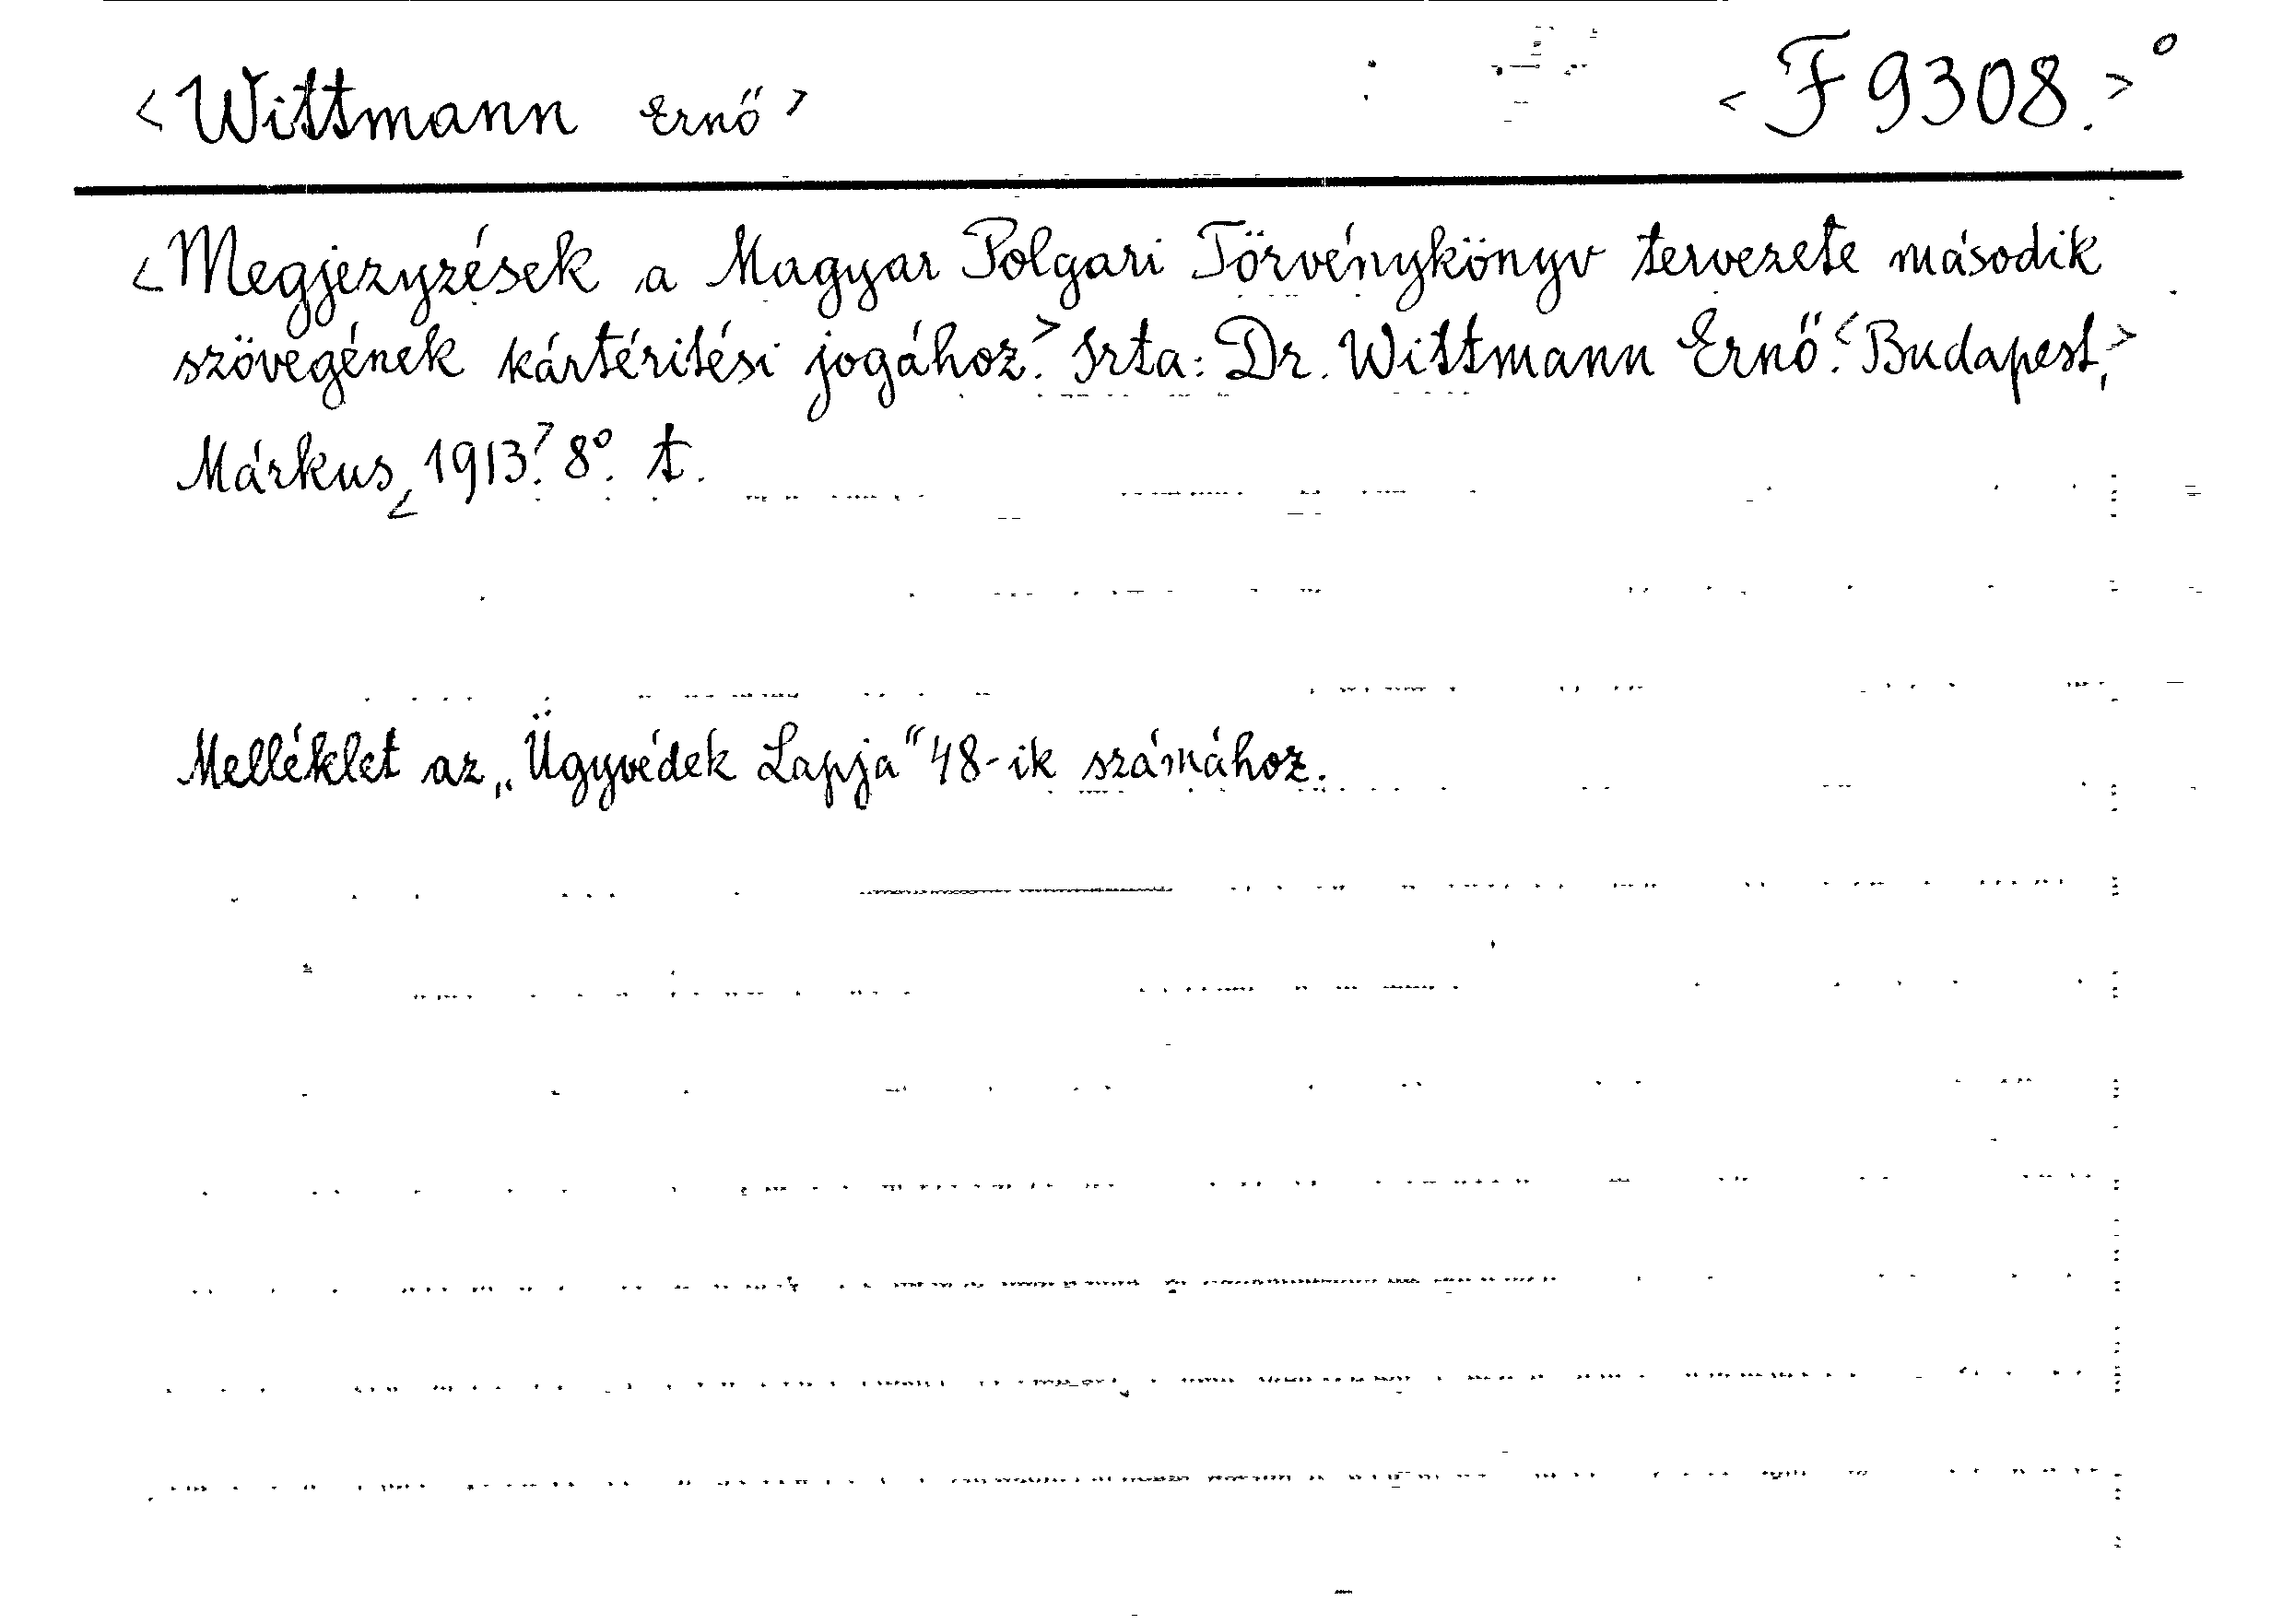 <Wittmann Ernő> <F 9308.>°
<Megjezyzések a Magyar Polgari Törvénykönyv tervezete második
szövegének kártéritési jogához.> Irta: Dr. Wittmann Ernő. <Budapest,>
Márkus, <1913.> 8°. t.
Melléklet az „Ügyvédek Lapja" 48-ik számához.